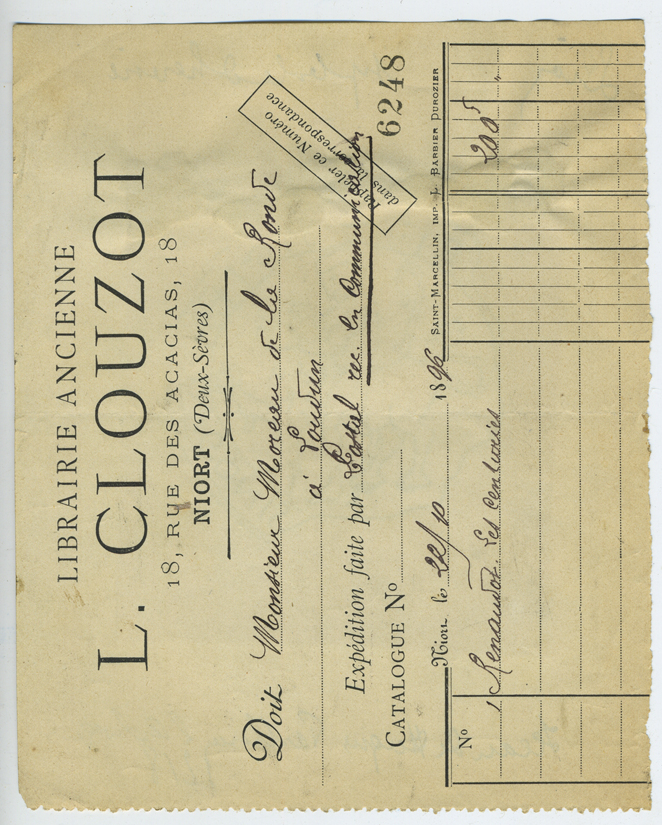 LIBRAIRIE ANCIENNE
L. CLOUZOT
18, RUE DES ACACIAS, 18
NIORT (Deux-Sèvres)
Rappeler ce Numéro
dans la correspondance
6248
Doit Monsieur Moreau de la Ronde
à Loudun
Expédition faite par Postal rec. en communication
CATALOGUE Nº
Niort, le 22/10 1896
SAINT-MARCELLIN, IMP. L. BARBIER DUROZIER
Nº
1 Renaudot. Les Centuries 200 "